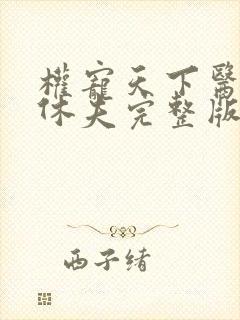 權寵天下醫
休夫完整版
西子绪